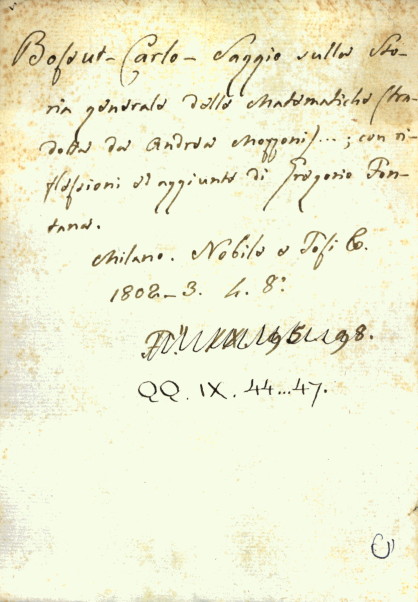 Bossut - Carlo - Saggio sulla Sto-
ria generale delle Matematiche (tra-
dotta da Andrea Mozzoni)...; con ri-
flessioni ed aggiunte di Gregorio Fon-
tana.
Milano. Nobile e Tosi C.
1802-3. 4. 8.°
98.
QQ. IX. 44...47.